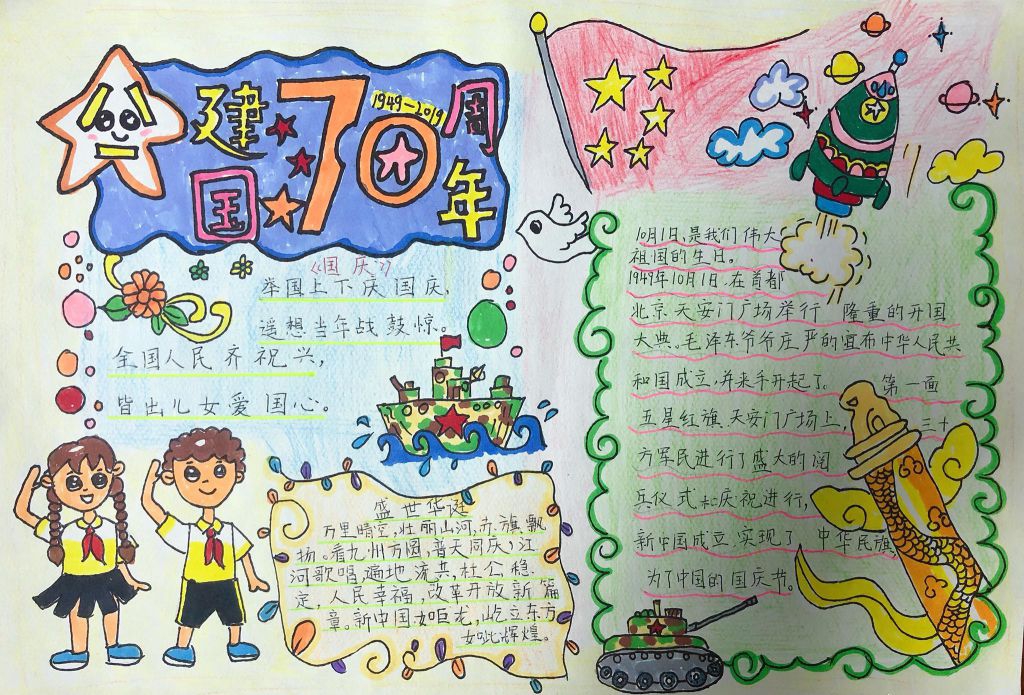 建国70周年
1949-2019
《国庆》
举国上下庆国庆,
遥想当年战鼓惊。
全国人民齐祝兴,
皆出儿女爱国心。
盛世华诞
万里晴空,壮丽山河,升旗飘
扬。看九州万圆,普天同庆,江
河歌唱,遍地流共,社公稳
定,人民幸福,改革开放新篇
章。新中国如巨龙,屹立东方
如此辉煌。
10月1日,是我们伟大
祖国的生日。
1949年10月1日,在首都
北京天安门广场举行 隆重的开国
大典,毛泽东爷爷庄严的宣布中华人民共
和国成立,并亲手升起了 第一面
五星红旗,天安门广场上, 三十
万军民进行了盛大的阅
兵仪式和庆祝进行,
新中国成立,实现了 中华民族
为了中国的国庆节。